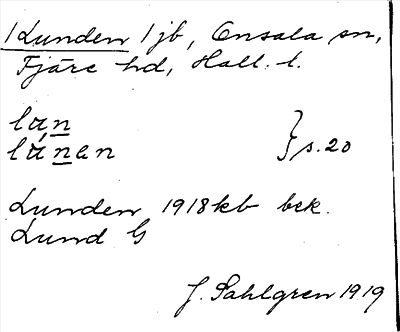 /Lunden/ jb, Onsala sn,
Fjäre hd, Hall. l.
lun
lunen } s. 20
Lunden 1918 kb bek.
Lund G
J. Sahlgren 1919